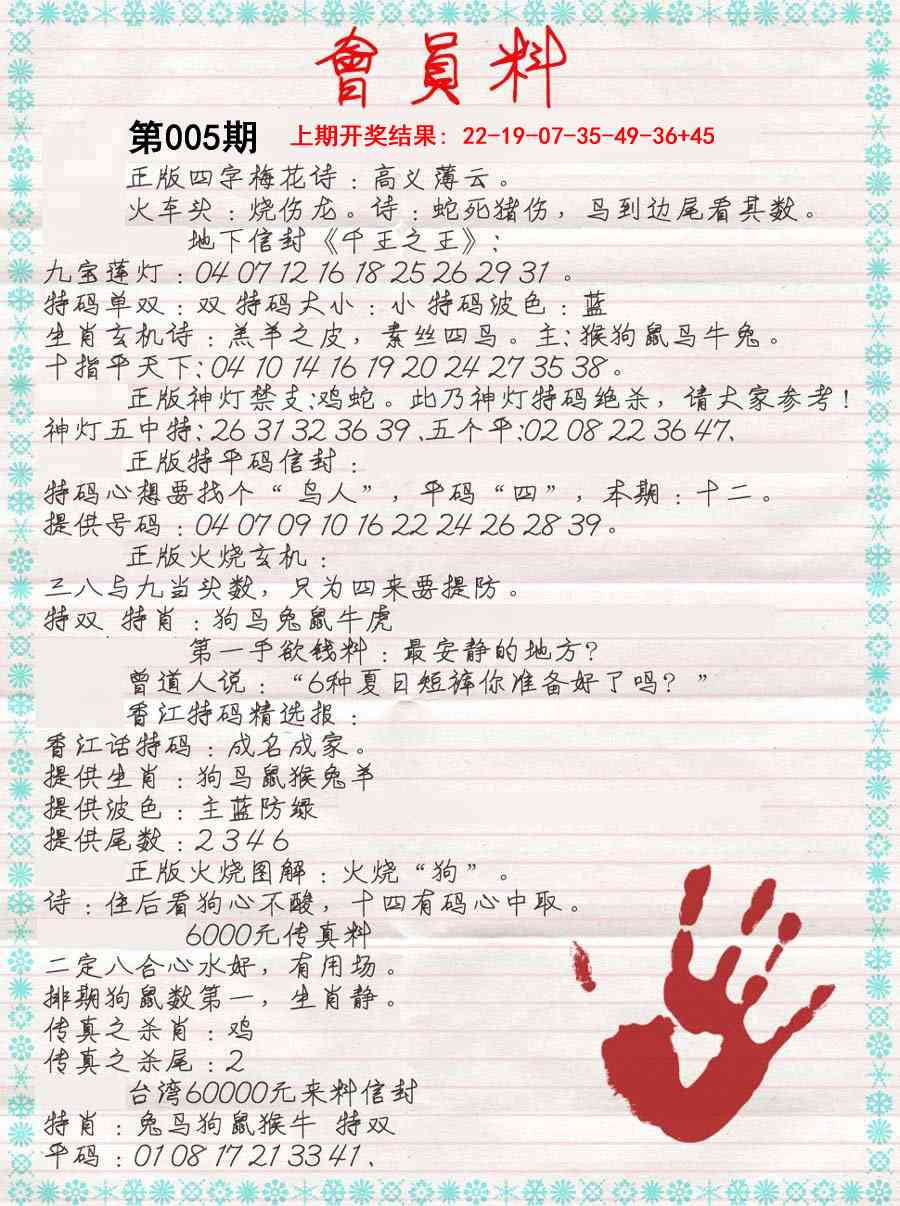 會員料
第005期 上期开奖结果：22-19-07-35-49-36+45
正版四字梅花诗：高义薄云。
火车头：烧伤龙。诗：蛇死猪伤，鸟到边尾看其数。
地下信封《千王之王》：
九宝莲灯：04 07 12 16 18 25 26 29 31 。
特码单双：双 特码大小：小 特码波色：蓝
生肖玄机诗：羔羊之皮，素丝四鸟。主：猴狗鼠鸟牛兔。
十指平天下：04 10 14 16 19 20 24 27 35 38 。
正版神灯禁支：鸡蛇。此乃神灯特码绝杀，请大家参考！
神灯五中特：26 31 32 36 39 、五个平：02 08 22 36 47、
正版特平码信封：
特码心想要找个“鸟人”，平码“四”，本期：十二。
提供号码：04 07 09 10 16 22 24 26 28 39。
正版火烧玄机：
三八与九当头数，只为四来要提防。
特双 特肖：狗鸟兔鼠牛虎
第一手欲钱料：最安静的地方？
曾道人说：“6种夏日短裤你准备好了吗？”
香江特码精选报：
香江话特码：成名成家。
提供生肖：狗鸟鼠猴兔羊
提供波色：主蓝防绿
提供尾数：2 3 4 6
正版火烧图解：火烧“狗”。
诗：住后看狗心不酸，十四有码心中取。
6000元传真料
二定八合心水好，有用场。
排期狗鼠数第一，生肖静。
传真之杀肖：鸡
传真之杀尾：2
台湾60000元来料信封
特肖：兔鸟狗鼠猴牛 特双
平码：01 08 17 21 33 41、